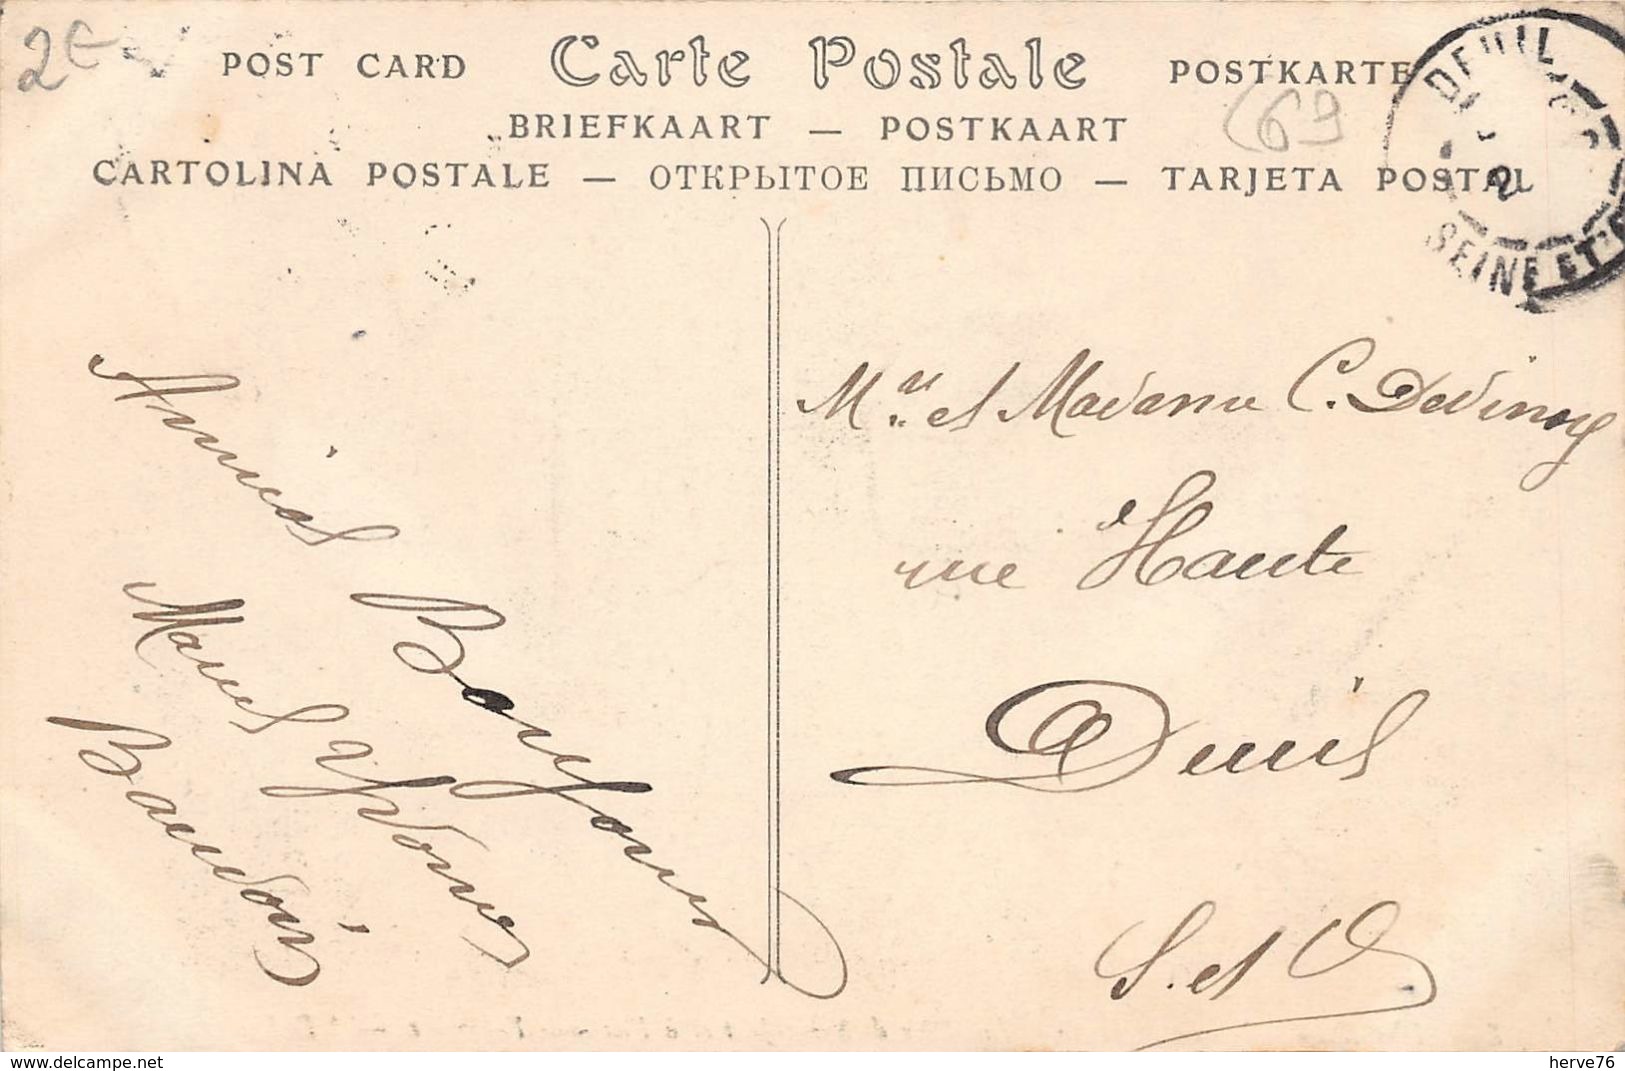 2€
POST CARD Carte Postale POSTKARTE
(69
BRIEFKAART — POSTKAART
CARTOLINA POSTALE — ОТКРЫТОЕ ПИСЬМО — TARJETA POSTAL
DEUIL
2
SEINE ET
Amical Bonjour
Marcel Yvonne
Baudoin
Mr et Madame C. Devimy
rue Haute
Deuil
S. et O
delcampe.net
herve76